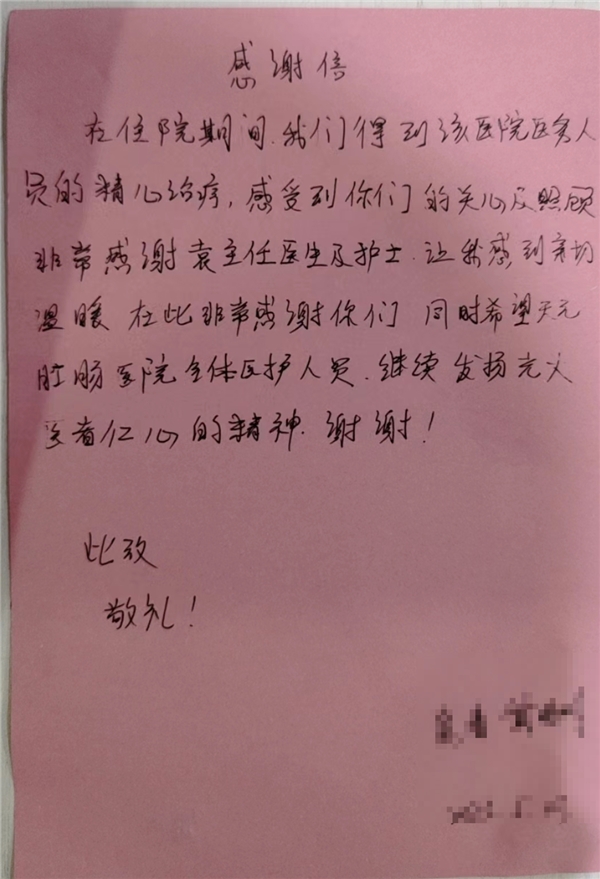 感谢信
在住院期间.我们得到该医院医务人
员的精心治疗，感受到你们的关心及照顾
非常感谢袁主任医生及护士.让我感到亲切
温暖 在此非常感谢你们 同时希望天元
肛肠医院全体医护人员.继续发扬光大
医者仁心的精神.谢谢！
此致
敬礼！